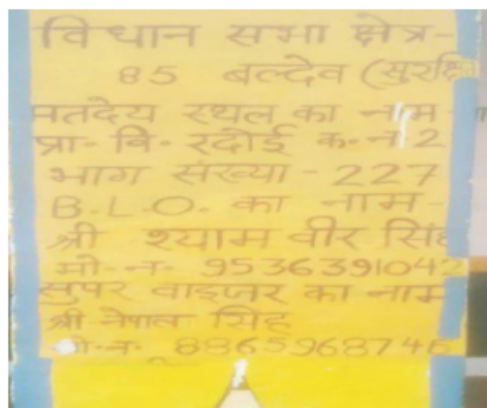 विधान सभा क्षेत्र-
85 बल्देव (सुरक्षि
मतदेय स्थल का नाम
प्रा॰ वि॰ रदोई क॰ न 2
भाग संख्या - 227
B.L.O. का नाम-
श्री श्याम वीर सिंह
मो॰ न॰ 9536391042
सुपर वाइजर का नाम
श्री नेपाल सिंह
मो॰ न॰ 8865968746